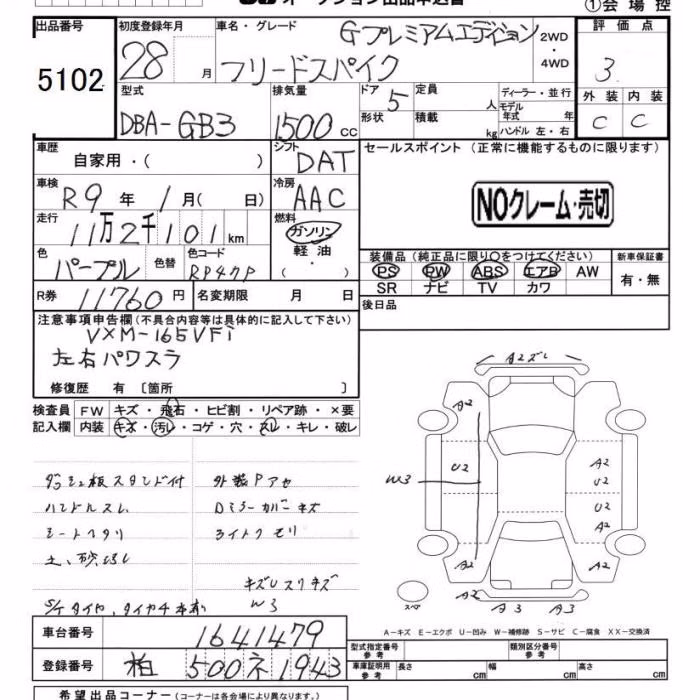 オークション出品申込書
①会場控
出品番号
5102
初度登録年月
28 月
車名・グレード
Gプレミアムエディション
フリードスパイク
2WD
・
4WD
評価点
3
外装 内装
C C
型式
DBA-GB3
排気量
1500 cc
ドア
5
形状
定員
人
積載
kg
ディーラー・並行
モデル年式 年
ハンドル 左・右
車歴
自家用・( )
シフト
DAT
車検
R9 年 1月( 日)
冷房
AAC
走行
11万2千101 km
燃料
ガソリン
軽油
・( )
色
パープル
色替
色コード
RP47P
R券 11760 円
名変期限 月 日
セールスポイント (正常に機能するものに限ります)
NOクレーム・売切
装備品 (純正品に限り○をつけてください)
PS PW ABS エアB AW
SR ナビ TV カワ
新車保証書
有・無
後日品
注意事項申告欄(不具合内容等は具体的に記入して下さい)
VXM-165VFi
左右パワスラ
修復歴 有 〔箇所 〕
検査員記入欄
FW キズ・飛石・ヒビ割・リペア跡・×要
内装 キズ・汚レ・コゲ・穴・スレ・キレ・破レ
外装Pアセ
ハンドルスレ
Dミラーカバーキズ
シートヘタリ
ライトクモリ
キズUスリキズ
W3
A2ズレ
A2
U2
W3
A2
U2
U2
A2
A2
A2
A2
A3
A3
スペア
A-キズ E-エクボ U-凹み W-補修跡 S-サビ C-腐食 XX-交換済
車台番号
1641479
登録番号
柏 500 ネ 1943
型式指定番号
参考
類別区分番号
参考
車庫証明用
参考
長さ cm
幅 cm
高さ cm
希望出品コーナー(コーナーは各会場により異なります。)